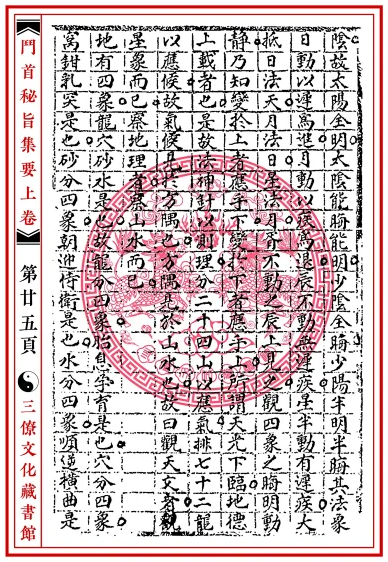 陰故太陽全明太陰能晦能明少陰全晦少陽半明半晦其法象
日動以遲為進月動以疾為退辰不動無遲疾星半動有遲疾大
抵日法天月法日星法月胥不動之辰上見也觀四象之晦明動
静乃知變扵上者應扵下變扵下者應扵上所謂天光下臨地德
上載者也是故法獅針以則理分二十四山以應氣排七十二龍
以應候故氣候具扵方隅也方隅光扵山水也故曰觀天文者觀
星象而已察地理者察山水而已
地有四象龍穴砂水是也故龍分四象胎息孕育是也穴分四象
窩鉗乳突是也砂分四象朝迎侍衛是也水分四象順逆橫曲是
鬥首秘旨集要上卷
第廿五頁
三僚文化藏書館